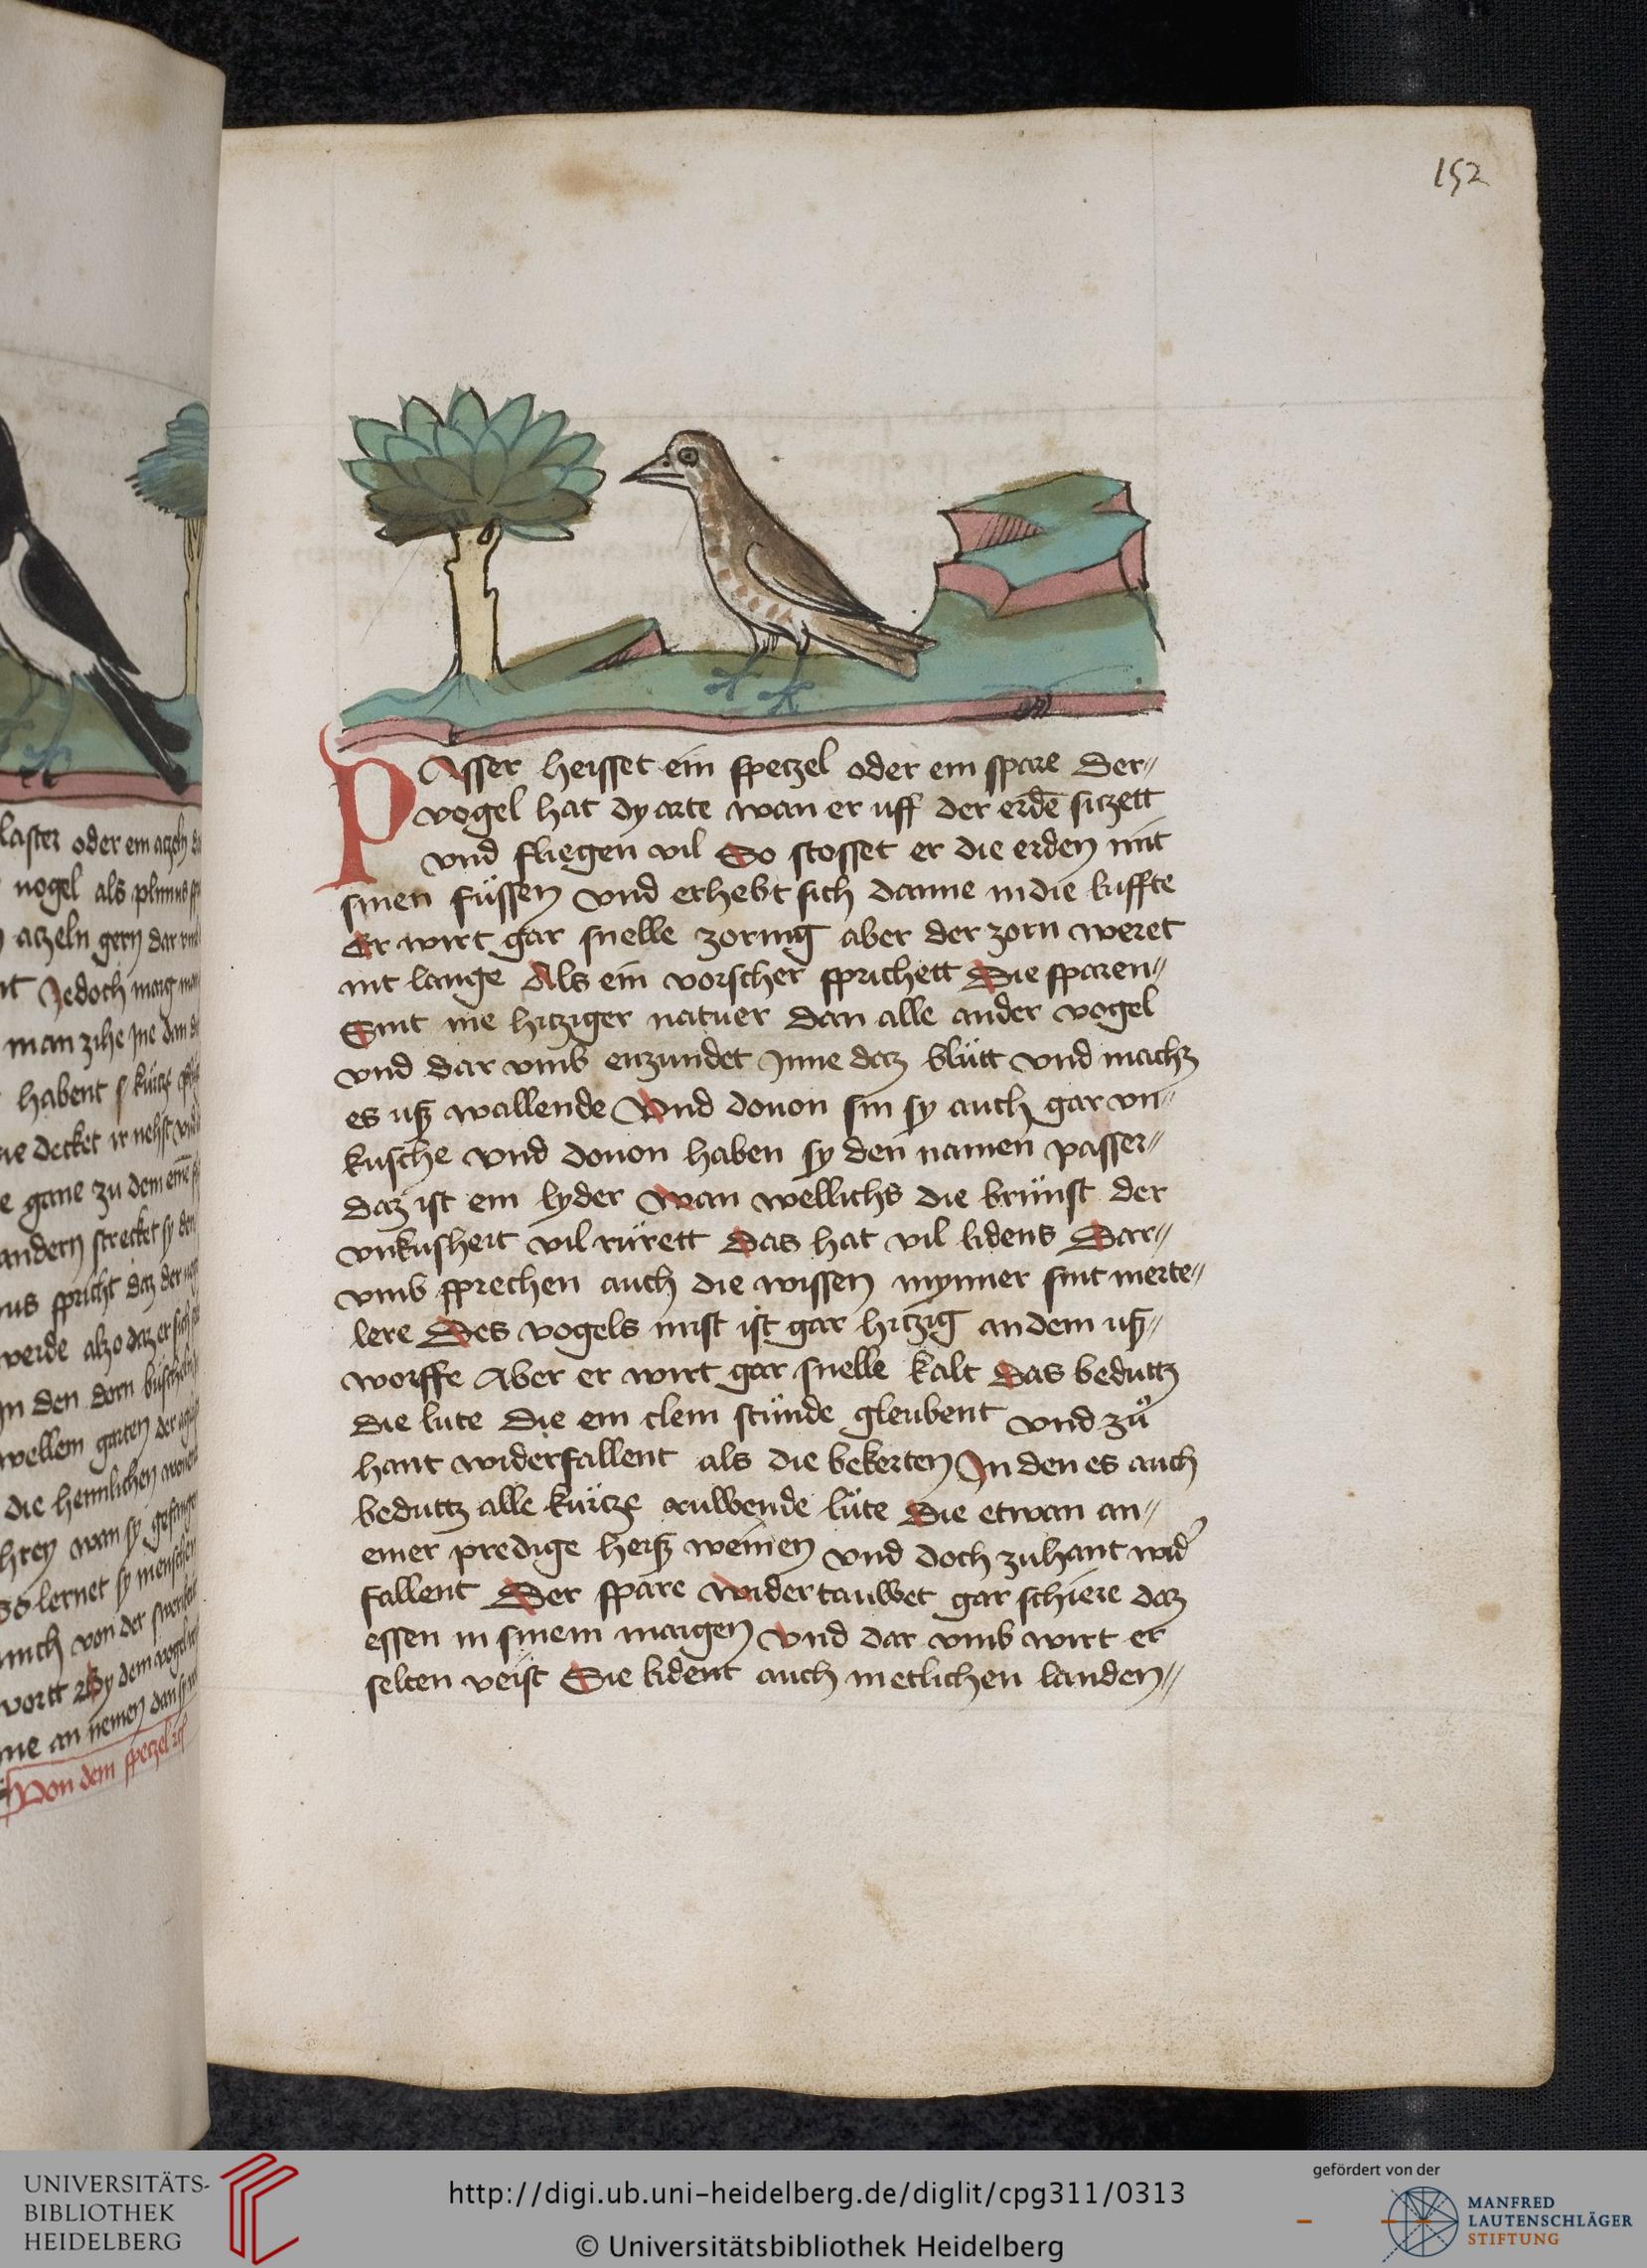 152
PAsser heisset ein spetzel oder ein spare Der⸗
vogel hat dy arte wan er uff der erdē sitzett
vnd fliegen vil So stosset er die erden mit
sinen füssen vnd erhebt sich danne in die luffte
Er wirt gar snelle zornig aber der zorn weret
nit lange Als ein vorscher sprichett Die sparen⸗
Sint me hitziger natuer dan alle ander vogel
vnd dar vmb enzundet Inne daz blütt vnd machz
es usz wallende Vnd douon sin sy auch gar vn⸗
kusche vnd douon haben sy den namen passer⸗
daz ist ein lyder Wan wellichs die brünst der
vnkusheit vil rürett Das hat vil lidens Dar⸗
vmb sprechen auch die wissen mynner sint merte⸗
lere Des vogels mist ist gar hitzig an dem usz⸗
worffe Aber er wirt gar snelle kalt Das beduttz
die lute Die ein clein stünde gleubent vnd zuͦ
hant widerfallent als die bekerten In den es auch
beduttz alle kürtze ruwende lüte Die etwan an⸗
einer predige heisz weinen vnd doch zuhant wid'
fallent Der spare widertauwet gar schiere daz
essen in sinem maigen Vnd dar vmb wirt er
selten veist Sie lident auch in etlichen landen⸗
laster oder ein atzeln
nogel als plinius
atzeln gern dar
Jedoch mag man
man zihe Ine
habent
decket ir nehst
gane zu dem
andern strecket sy den
spricht daz der
werde alzo daz er sich
In den dorn
wellem garten der
die heimlichen
wan sy
So lernet sy menschen
von der
wortt by dem vogel
an nemen dan
Von dem spetzel
UNIVERSITÄTS-
BIBLIOTHEK
HEIDELBERG
http://digi.ub.uni-heidelberg.de/diglit/cpg311/0313
© Universitätsbibliothek Heidelberg
gefördert von der
MANFRED
LAUTENSCHLÄGER
STIFTUNG